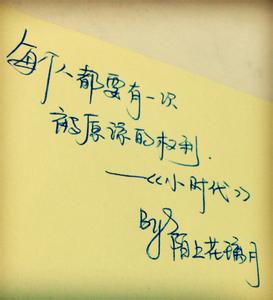 每个人都要有一次
被原谅的权利.
——《小时代》
By
陌上花痛月